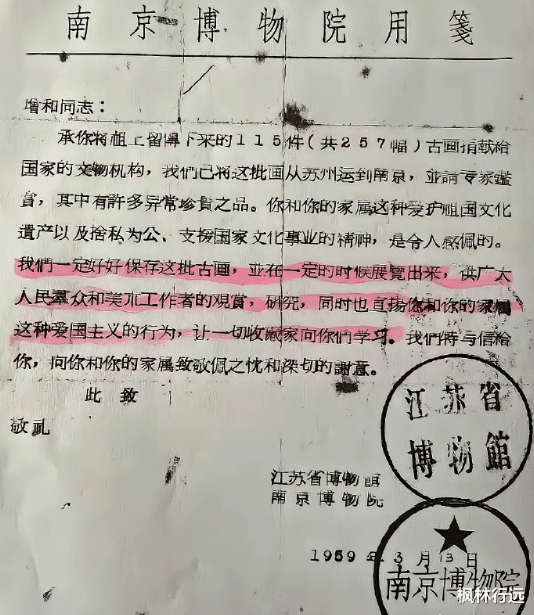 南京博物院用箋
增和同志：
承你将祖上留傳下来的115件(共257幅)古画捐献给
国家的文物机构，我们已将这批画从苏州运到南京，並請专家鑑
賞，其中有許多异常珍貴之品。你和你的家属这种爱护祖国文化
遺产以及捨私为公、支援国家文化事业的精神，是令人感佩的。
我們一定好好保存这批古画，並在一定的时候展覽出来，供广大
人民羣众和美朮工作者的观賞，研究，同时也直扬你和你的家属
这种爱国主义的行为，让一切收藏家向你們学习。我們特与信給
你，向你和你的家属致敬佩之忱和深切的謝意。
此致
敬礼
江苏省博物館
南京博物院
1959年3月13日
江苏省
博物館
南京博物院
枫林行远